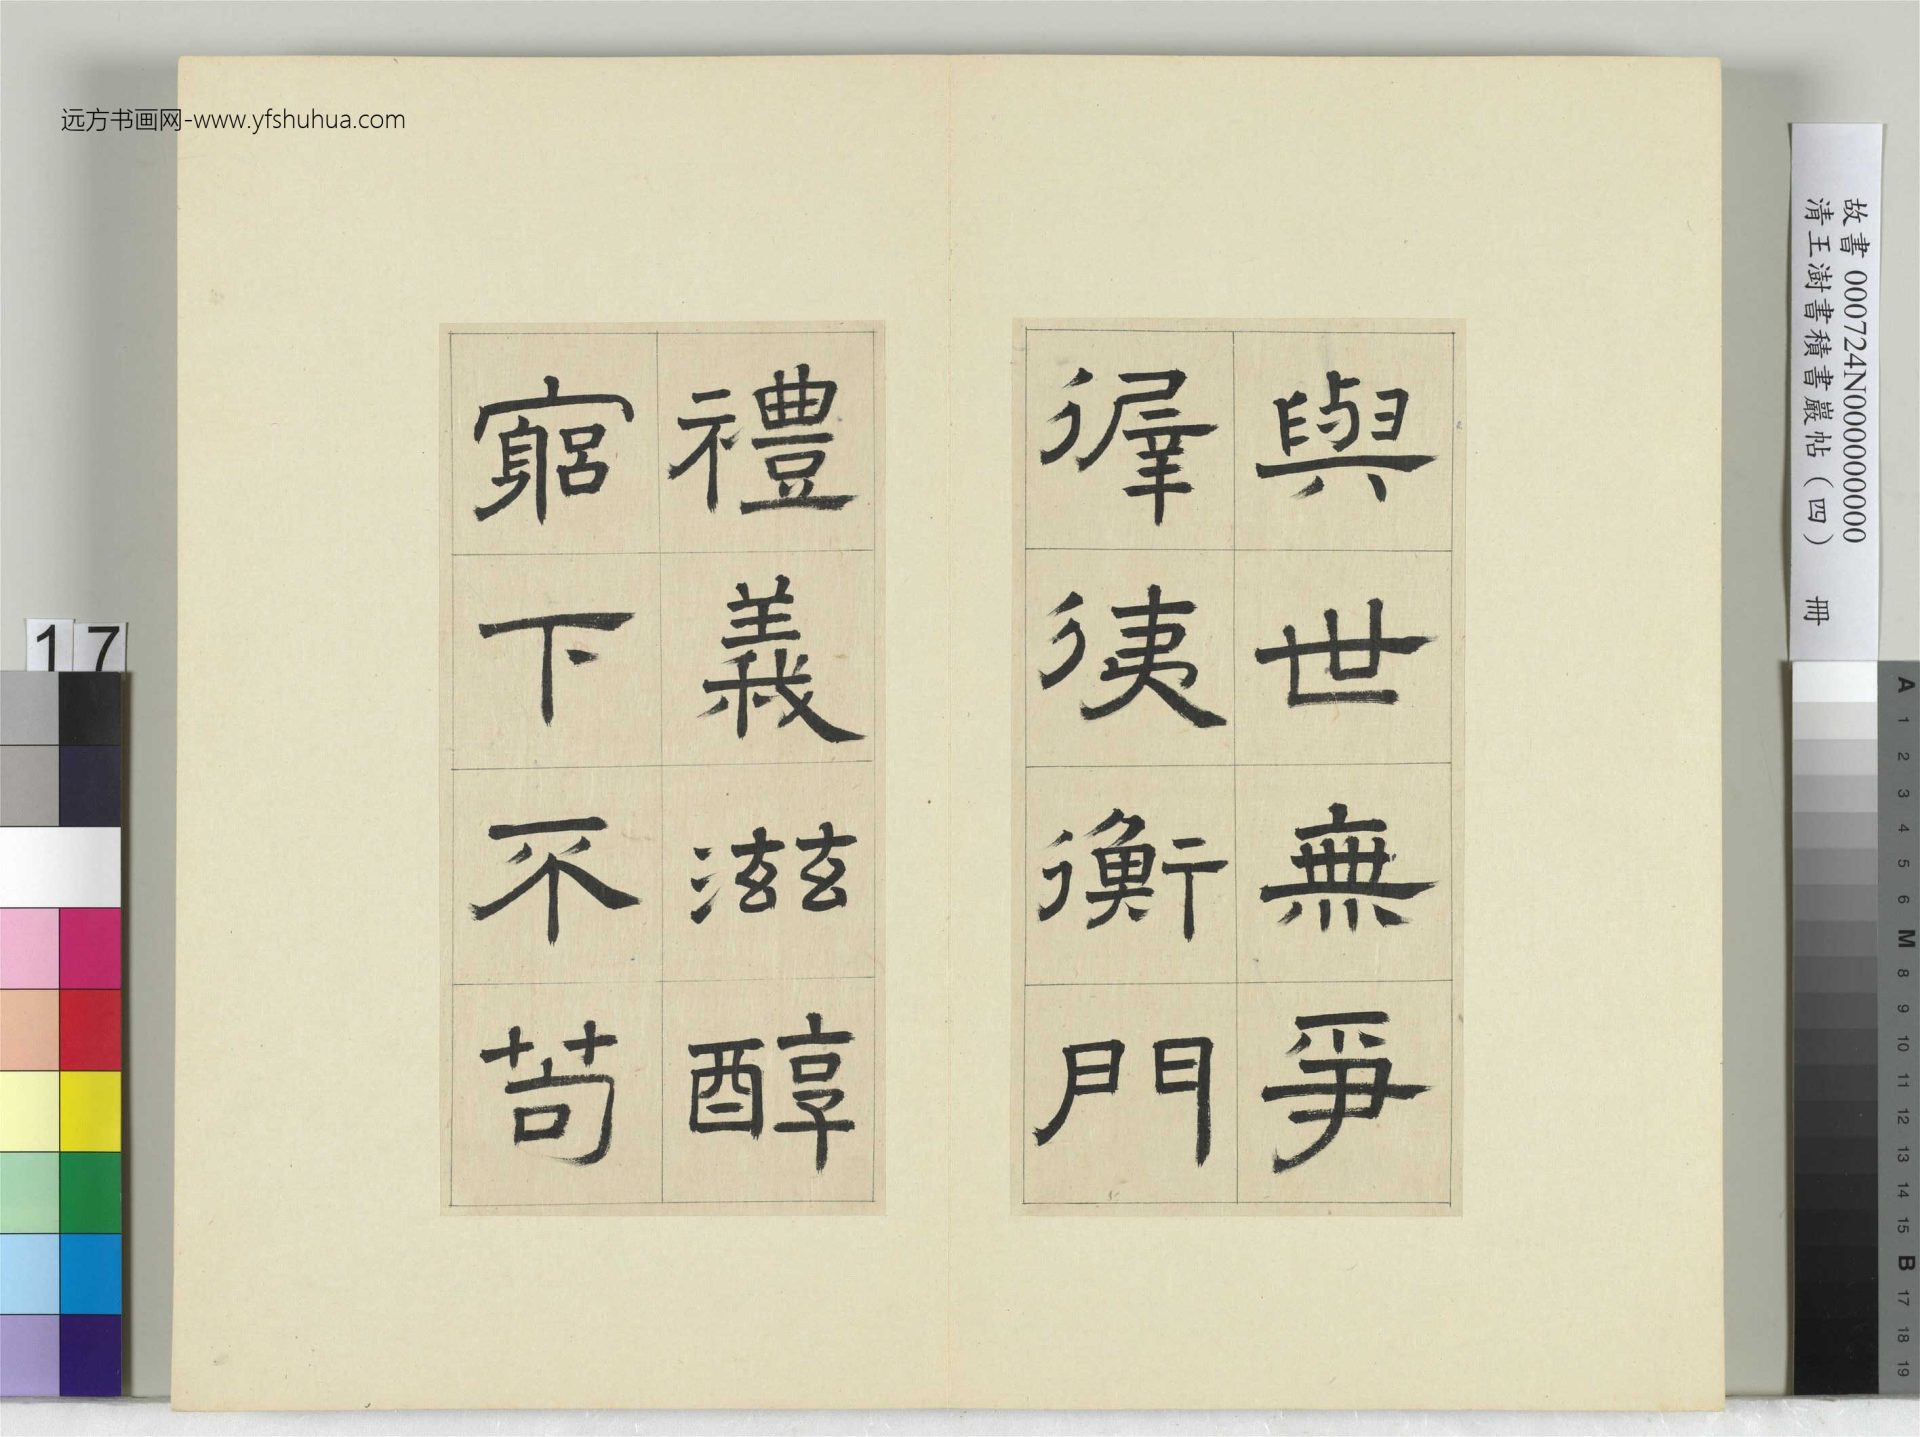 與世無爭
徲㣢衡門
禮義滋醇
窮下不苟
远方书画网-www.yfshuhua.com
故書 000724N000000000
清王澍書積書巖帖（四） 冊
17
A 1 2 3 4 5 6 M 8 9 10 11 12 13 14 15 B 17 18 19